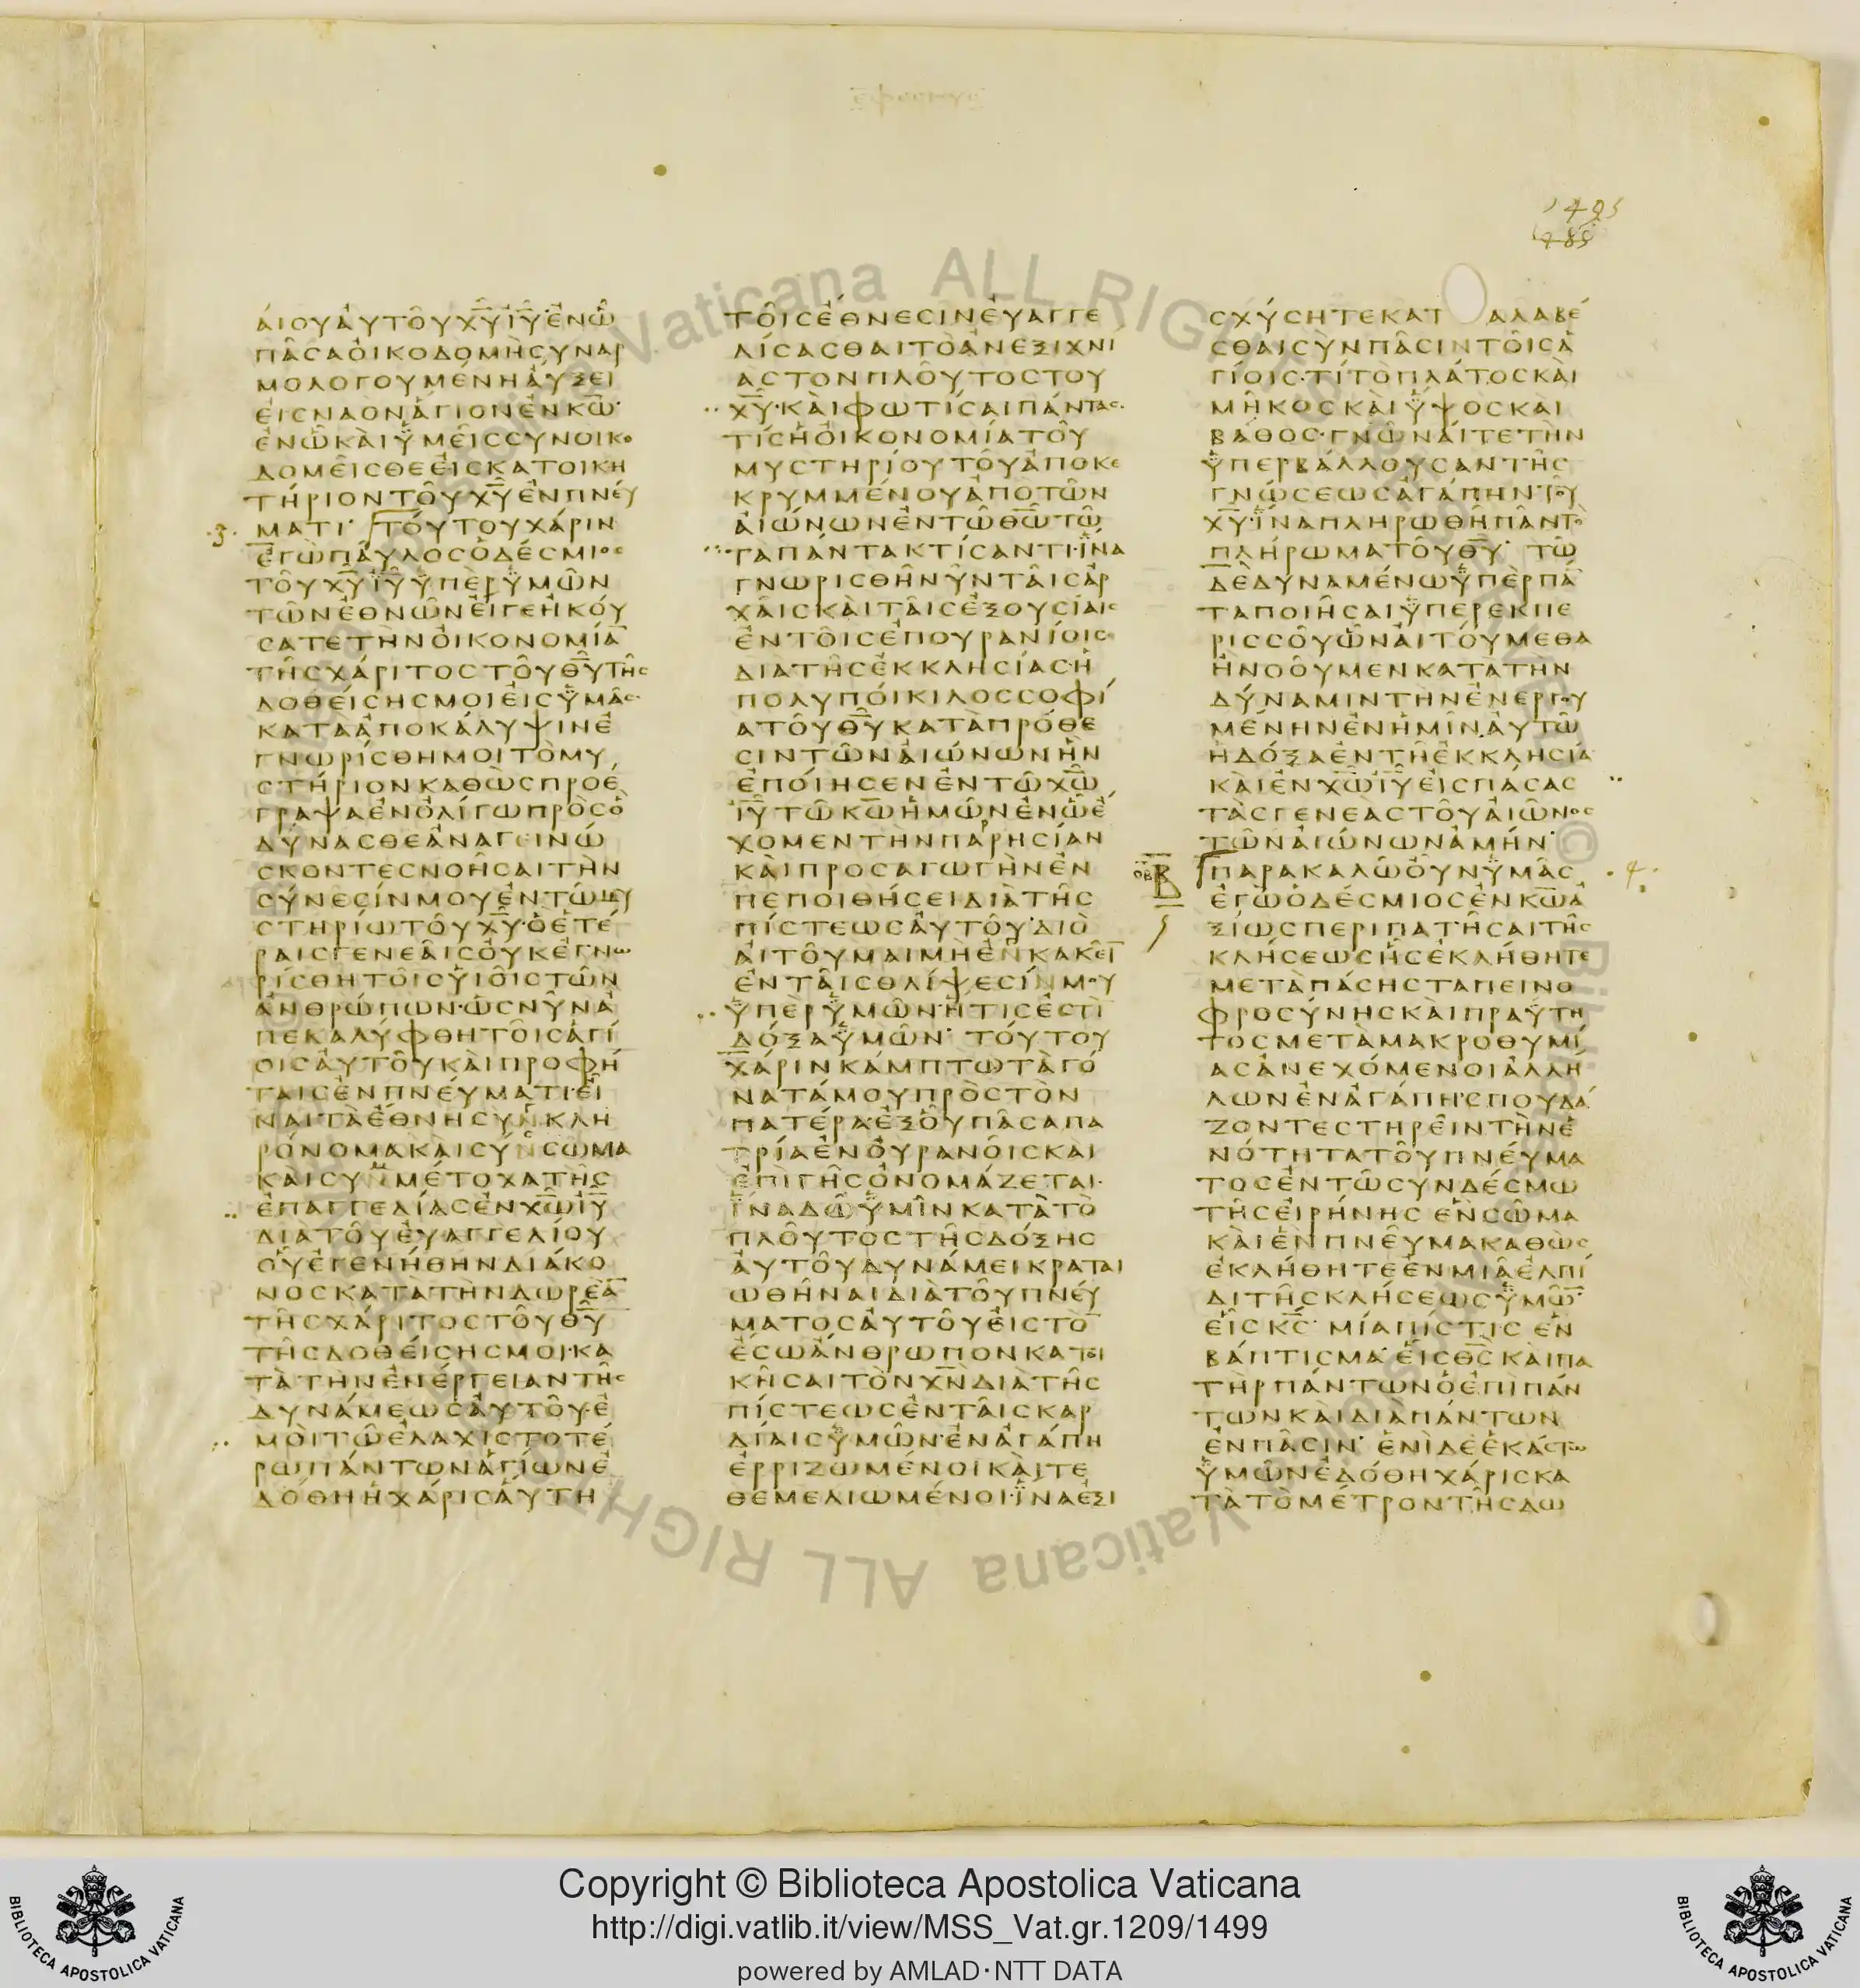 εφεσιους
1493
ΑΙΟΥΑΥΤΟΥΧΥΙΥΕΝΩ
ΠΑCΑΟΙΚΟΔΟΜΗCΥΝΑΡ
ΜΟΛΟΓΟΥΜΕΝΗΑΥΞΕΙ
ΕΙCΝΑΟΝΑΓΙΟΝΕΝΚΩ
ΕΝΩΚΑΙΥΜΕΙCCΥΝΟΙΚΟ
ΔΟΜΕΙCΘΕΕΙCΚΑΤΟΙΚΗ
ΤΗΡΙΟΝΤΟΥΧΥΕΝΠΝΕΥ
·3· ΜΑΤΙ ΤΟΥΤΟΥΧΑΡΙΝ
ΕΓΩΠΑΥΛΟCΟΔΕCΜΙΟC
ΤΟΥΧΥΙΥΥΠΕΡΥΜΩΝ
ΤΩΝΕΘΝΩΝΕΙΓΕΗΚΟΥ
CΑΤΕΤΗΝΟΙΚΟΝΟΜΙΑ̅
ΤΗCΧΑΡΙΤΟCΤΟΥΘΥΤΗC
ΔΟΘΕΙCΗCΜΟΙΕΙCΥΜΑC·
ΚΑΤΑΑΠΟΚΑΛΥΨΙΝΕ
ΓΝΩΡΙCΘΗΜΟΙΤΟΜΥ
CΤΗΡΙΟΝΚΑΘΩCΠΡΟΕ
ΓΡΑΨΑΕΝΟΛΙΓΩΠΡΟCΟ
ΔΥΝΑCΘΕΑΝΑΓΕΙΝΩ
CΚΟΝΤΕCΝΟΗCΑΙΤΗΝ
CΥΝΕCΙΝΜΟΥΕΝΤΩΜΥ
CΤΗΡΙΩΤΟΥΧΥ·ΟΕΤΕ
ΡΑΙCΓΕΝΕΑΙCΟΥΚΕΓΝΩ
ΡΙCΘΗΤΟΙCΥΙΟΙCΤΩΝ
ΑΝΘΡΩΠΩΝ·ΩCΝΥΝΑ
ΠΕΚΑΛΥΦΘΗΤΟΙCΑΓΙ
ΟΙCΑΥΤΟΥΚΑΙΠΡΟΦΗ
ΤΑΙCΕΝΠΝΕΥΜΑΤΙ·ΕΙ
ΝΑΙΤΑΕΘΝΗCΥΝΚΛΗ
ΡΟΝΟΜΑΚΑΙCΥΝCΩΜΑ
ΚΑΙCΥΝΜΕΤΟΧΑΤΗC
ΕΠΑΓΓΕΛΙΑCΕΝΧΩΙΥ
ΔΙΑΤΟΥΕΥΑΓΓΕΛΙΟΥ
ΟΥΕΓΕΝΗΘΗΝΔΙΑΚΟ
ΝΟCΚΑΤΑΤΗΝΔΩΡΕΑ̅
ΤΗCΧΑΡΙΤΟCΤΟΥΘΥ
ΤΗCΔΟΘΕΙCΗCΜΟΙ·ΚΑ
ΤΑΤΗΝΕΝΕΡΓΕΙΑΝΤΗC
ΔΥΝΑΜΕΩCΑΥΤΟΥ·Ε
ΜΟΙΤΩΕΛΑΧΙCΤΟΤΕ
ΡΩΠΑΝΤΩΝΑΓΙΩΝΕ
ΔΟΘΗΗΧΑΡΙCΑΥΤΗ
ΤΟΙCΕΘΝΕCΙΝΕΥΑΓΓΕ
ΛΙCΑCΘΑΙΤΟΑΝΕΞΙΧΝΙ
ΑCΤΟΝΠΛΟΥΤΟCΤΟΥ
ΧΥ·ΚΑΙΦΩΤΙCΑΙΠΑΝΤΑC·
ΤΙCΗΟΙΚΟΝΟΜΙΑΤΟΥ
ΜΥCΤΗΡΙΟΥΤΟΥΑΠΟΚΕ
ΚΡΥΜΜΕΝΟΥΑΠΟΤΩΝ
ΑΙΩΝΩΝΕΝΤΩΘΩΤΩ
ΓΑΠΑΝΤΑΚΤΙCΑΝΤΙ·ΙΝΑ
ΓΝΩΡΙCΘΗΝΥΝΤΑΙCΑΡ
ΧΑΙCΚΑΙΤΑΙCΕΞΟΥCΙΑΙC
ΕΝΤΟΙCΕΠΟΥΡΑΝΙΟΙC
ΔΙΑΤΗCΕΚΚΛΗCΙΑCΗ
ΠΟΛΥΠΟΙΚΙΛΟCCΟΦΙ
ΑΤΟΥΘΥΚΑΤΑΠΡΟΘΕ
CΙΝΤΩΝΑΙΩΝΩΝΗΝ
ΕΠΟΙΗCΕΝΕΝΤΩΧΩ
ΙΥΤΩΚΩΗΜΩΝΕΝΩΕ
ΧΟΜΕΝΤΗΝΠΑΡΗCΙΑΝ
ΚΑΙΠΡΟCΑΓΩΓΗΝΕΝ
ΠΕΠΟΙΘΗCΕΙΔΙΑΤΗC
ΠΙCΤΕΩCΑΥΤΟΥΔΙΟ
ΑΙΤΟΥΜΑΙΜΗΕΝΚΑΚΕΙ̅
ΕΝΤΑΙCΘΛΙΨΕCΙΝΜΟΥ
ΥΠΕΡΥΜΩΝ·ΗΤΙCΕCΤΙ
ΔΟΞΑΥΜΩΝ ΤΟΥΤΟΥ
ΧΑΡΙΝΚΑΜΠΤΩΤΑΓΟ
ΝΑΤΑΜΟΥΠΡΟCΤΟΝ
ΠΑΤΕΡΑ·ΕΞΟΥΠΑCΑΠΑ
ΤΡΙΑΕΝΟΥΡΑΝΟΙCΚΑΙ
ΕΠΙΓΗCΟΝΟΜΑΖΕΤΑΙ·
ΙΝΑΔΩΥΜΙΝΚΑΤΑΤΟ
ΠΛΟΥΤΟCΤΗCΔΟΞΗC
ΑΥΤΟΥΔΥΝΑΜΕΙΚΡΑΤΑΙ
ΩΘΗΝΑΙΔΙΑΤΟΥΠΝΕΥ
ΜΑΤΟCΑΥΤΟΥΕΙCΤΟ̅
ΕCΩΑΝΘΡΩΠΟΝΚΑΤΟΙ
ΚΗCΑΙΤΟΝΧΝΔΙΑΤΗC
ΠΙCΤΕΩCΕΝΤΑΙCΚΑΡ
ΔΙΑΙCΥΜΩΝ·ΕΝΑΓΑΠΗ
ΕΡΡΙΖΩΜΕΝΟΙΚΑΙΤΕ
ΘΕΜΕΛΙΩΜΕΝΟΙ·ΙΝΑΕΞΙ
CΧΥCΗΤΕΚΑΤ ΑΛΑΒΕ
CΘΑΙCΥΝΠΑCΙΝΤΟΙCΑ
ΓΙΟΙC·ΤΙΤΟΠΛΑΤΟCΚΑΙ
ΜΗΚΟCΚΑΙΥΨΟCΚΑΙ
ΒΑΘΟC·ΓΝΩΝΑΙΤΕΤΗΝ
ΥΠΕΡΒΑΛΛΟΥCΑΝΤΗC
ΓΝΩCΕΩCΑΓΑΠΗΝΤΟΥ
ΧΥ·ΙΝΑΠΛΗΡΩΘΗΠΑΝΤΟ
ΠΛΗΡΩΜΑΤΟΥΘΥ ΤΩ
ΔΕΔΥΝΑΜΕΝΩΥΠΕΡΠΑ̅
ΤΑΠΟΙΗCΑΙΥΠΕΡΕΚΠΕ
ΡΙCCΟΥΩΝΑΙΤΟΥΜΕΘΑ
ΗΝΟΟΥΜΕΝΚΑΤΑΤΗΝ
ΔΥΝΑΜΙΝΤΗΝΕΝΕΡΓΟΥ
ΜΕΝΗΝΕΝΗΜΙΝ·ΑΥΤΩ
ΗΔΟΞΑΕΝΤΗΕΚΚΛΗCΙΑ
ΚΑΙΕΝΧΩΙΥΕΙCΠΑCΑC
ΤΑCΓΕΝΕΑCΤΟΥΑΙΩΝΟC
ΤΩΝΑΙΩΝΩΝΑΜΗΝ
ΠΑΡΑΚΑΛΩΟΥΝΥΜΑC ·4·
ΕΓΩΟΔΕCΜΙΟCΕΝΚΩΑ
ΞΙΩCΠΕΡΙΠΑΤΗCΑΙΤΗC
ΚΛΗCΕΩCΗCΕΚΛΗΘΗΤΕ
ΜΕΤΑΠΑCΗCΤΑΠΕΙΝΟ
ΦΡΟCΥΝΗCΚΑΙΠΡΑΥΤΗ
ΤΟCΜΕΤΑΜΑΚΡΟΘΥΜΙ
ΑCΑΝΕΧΟΜΕΝΟΙΑΛΛΗ
ΛΩΝΕΝΑΓΑΠΗ·CΠΟΥΔΑ
ΖΟΝΤΕCΤΗΡΕΙΝΤΗΝΕ
ΝΟΤΗΤΑΤΟΥΠΝΕΥΜΑ
ΤΟCΕΝΤΩCΥΝΔΕCΜΩ
ΤΗCΕΙΡΗΝΗC ΕΝCΩΜΑ
ΚΑΙΕΝΠΝΕΥΜΑΚΑΘΩC
ΕΚΛΗΘΗΤΕΕΝΜΙΑΕΛΠΙ
ΔΙΤΗCΚΛΗCΕΩCΥΜΩ̅
ΕΙCΚC ΜΙΑΠΙCΤΙC ΕΝ
ΒΑΠΤΙCΜΑ ΕΙCΘCΚΑΙΠΑ
ΤΗΡΠΑΝΤΩΝΟΕΠΙΠΑΝ
ΤΩΝΚΑΙΔΙΑΠΑΝΤΩΝ
ΕΝΠΑCΙΝ ΕΝΙΔΕΕΚΑCΤΩ
ΥΜΩΝΕΔΟΘΗΧΑΡΙCΚΑ
ΤΑΤΟΜΕΤΡΟΝΤΗCΔΩ
Vaticana ALL RIGHT
© Biblioteca
Vaticana ALL RIGHT
Copyright © Biblioteca Apostolica Vaticana
http://digi.vatlib.it/view/MSS_Vat.gr.1209/1499
powered by AMLAD·NTT DATA
BIBLIOTECA APOSTOLICA VATICANA
BIBLIOTECA APOSTOLICA VATICANA